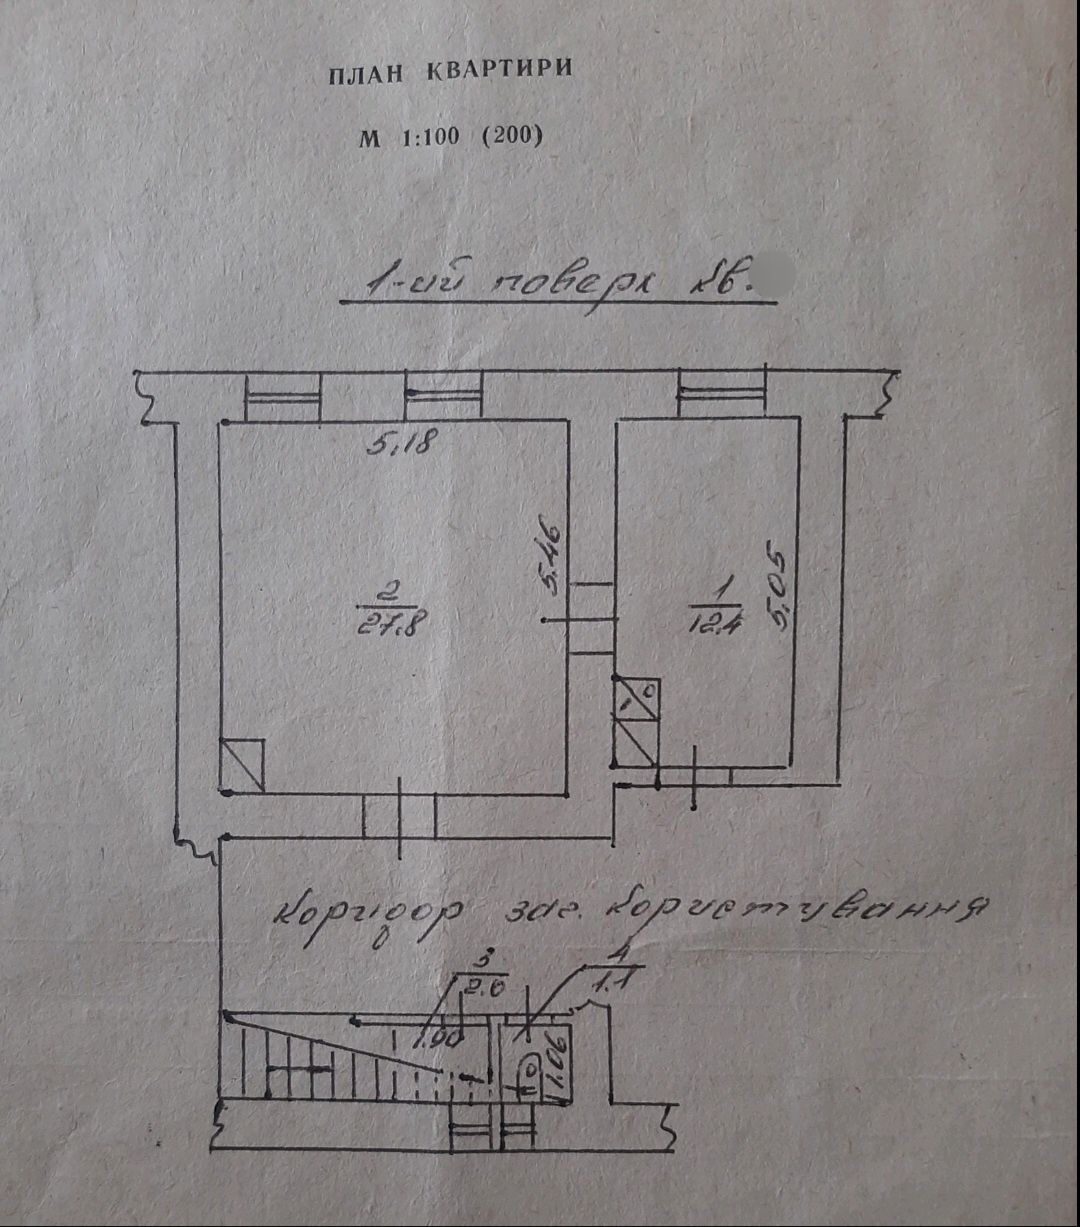 ПЛАН КВАРТИРИ
М 1:100 (200)
1-ий поверх кв.
5,18
5.46
2
27.8
1
12.4
5.05
коридор заг. користування
3
2.0
4
1.1
1.90
1.06